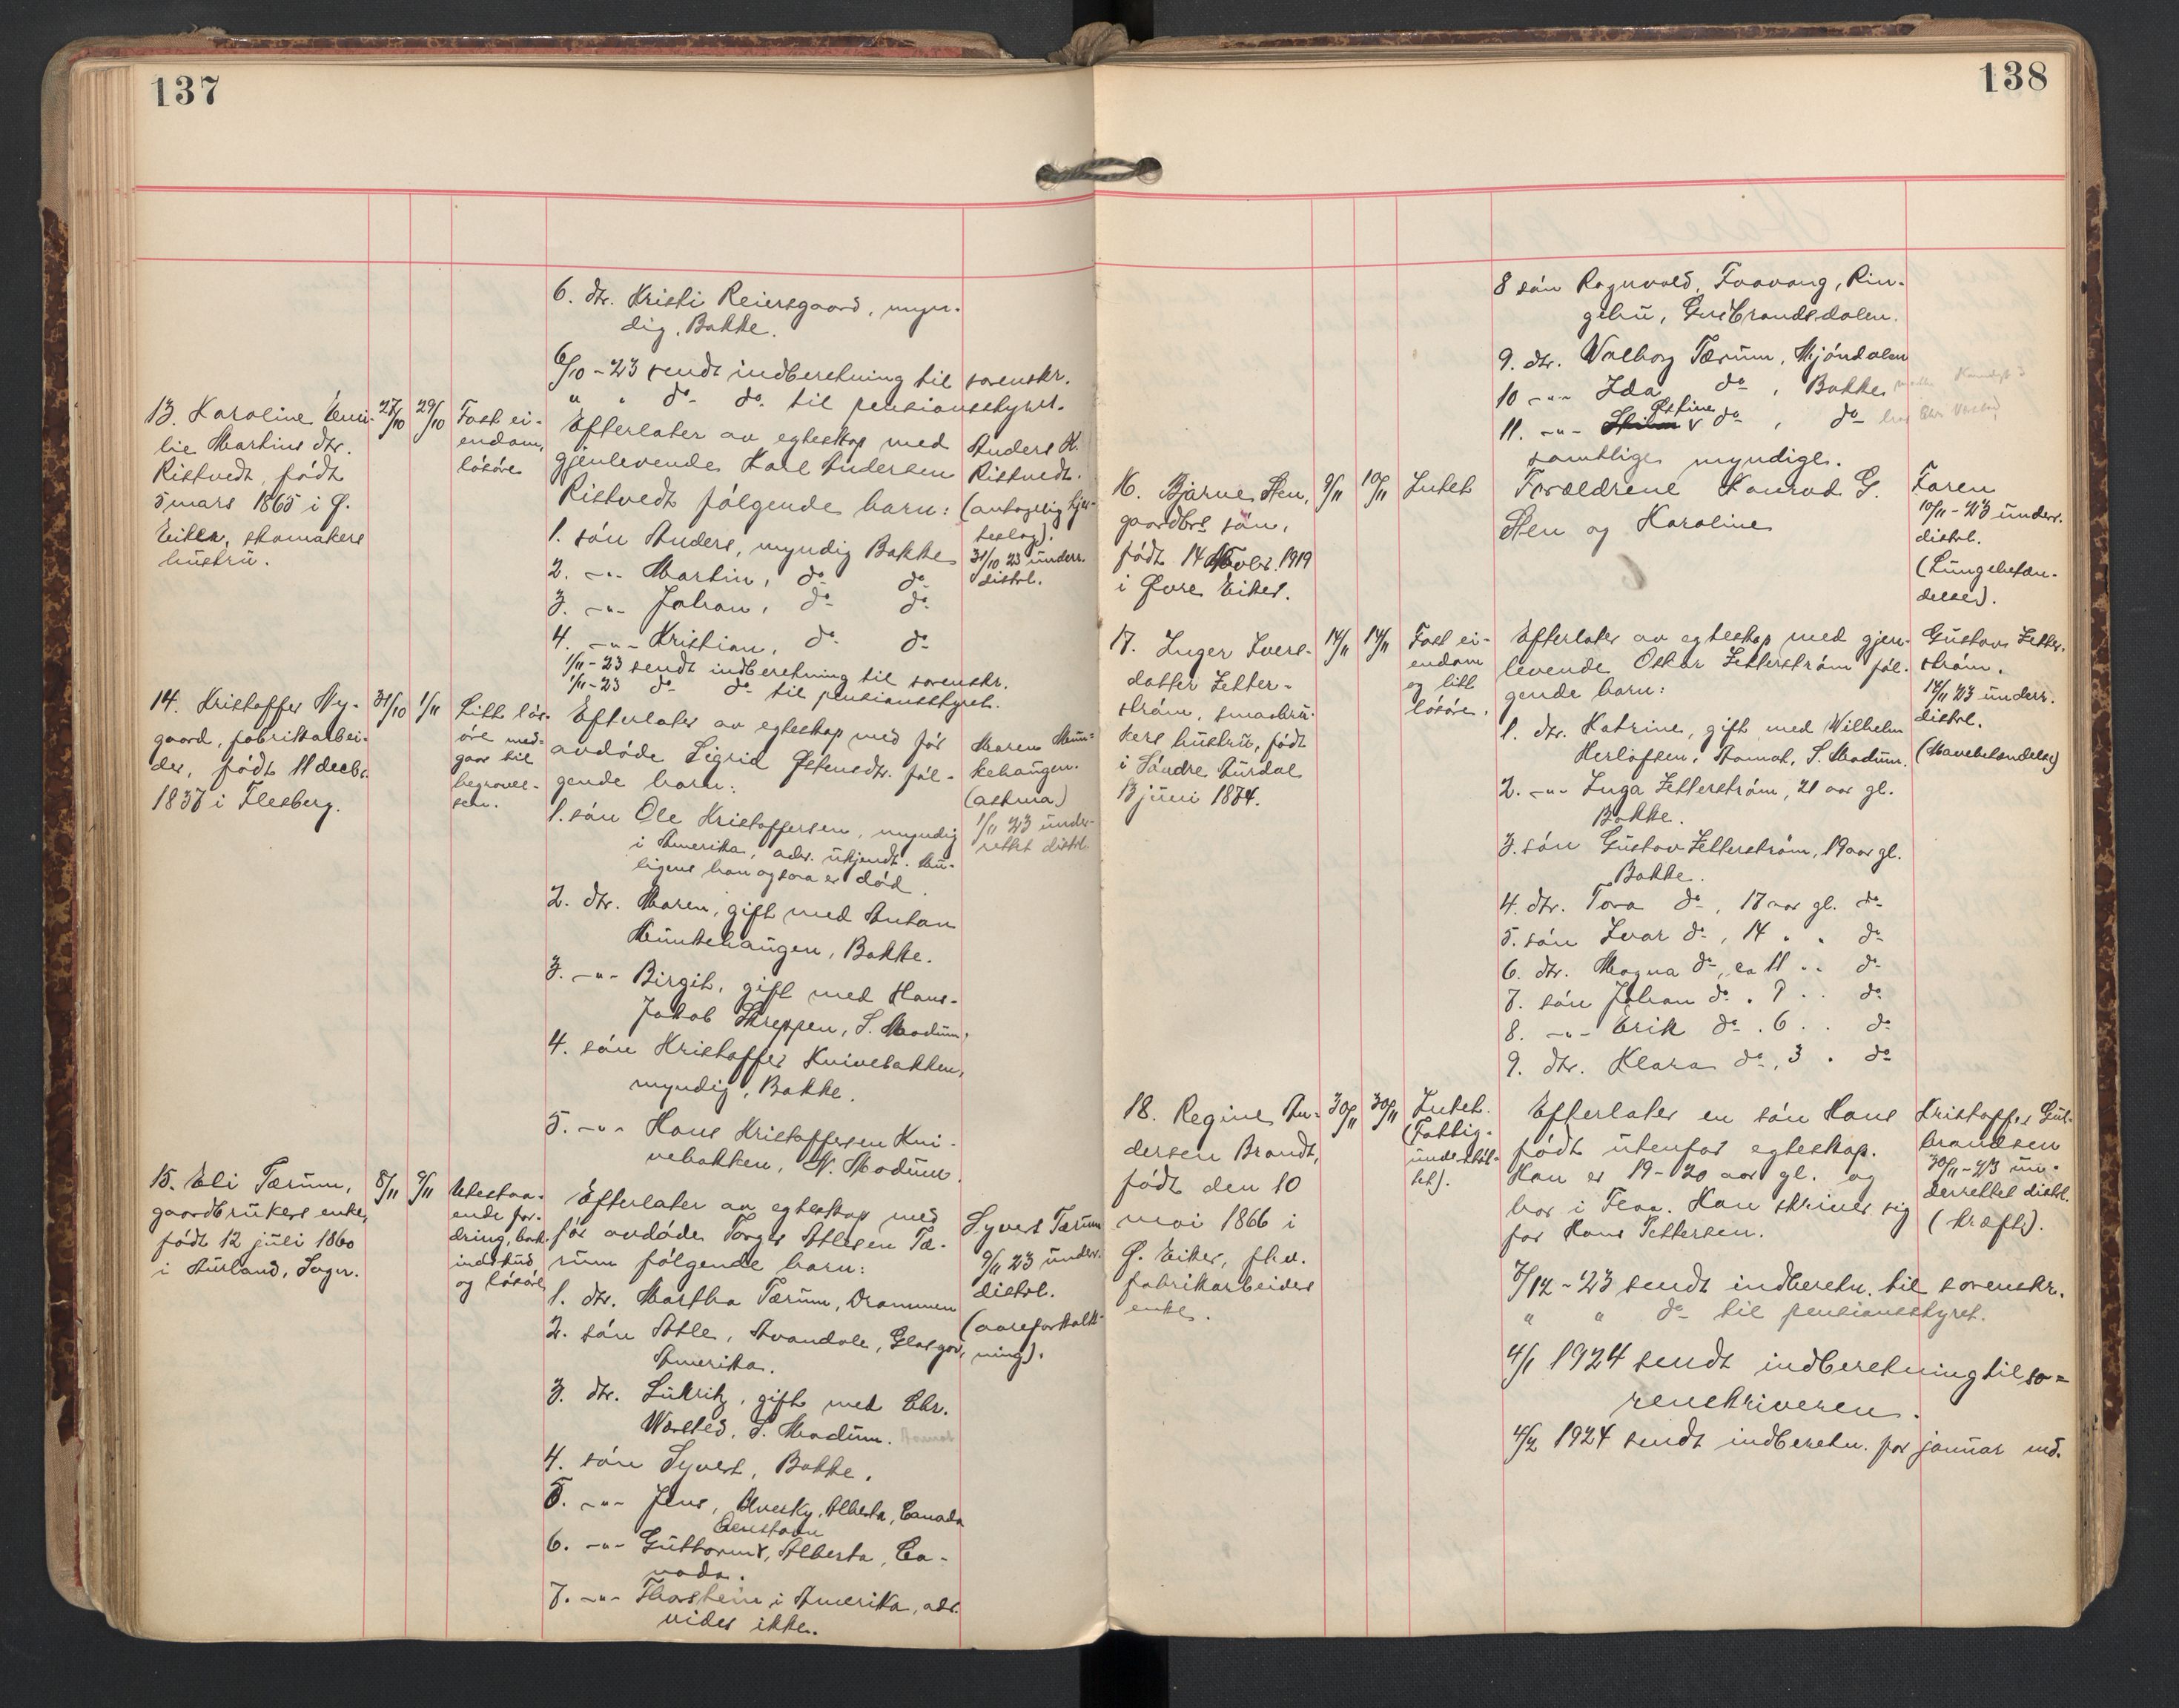 137
6. dtr. Kristi Reiersgaard, myn-
dig, Bakke.
6/10-23 sendt indberetning til sorenskr.
" " do do til pensionsstyret.
13. Karoline Emi-
lie Martins dtr.
Ristvedt, født
5 mars 1865 i Ø.
Eiker, skomakers
hustru.
27/10
29/10
Fast ei-
endom,
løsøre
Efterlater av egteskap med
gjenlevende Karl Andersen
Ristvedt følgende barn:
1. søn Anders, myndig Bakke
2. -"- Martin, do do
3. -"- Johan, do do
4. -"- Kristian, do do
1/11-23 sendt indberetning til sorenskr.
1/11-23 do do til pensionsstyret.
Anders K.
Ristvedt.
(antagelig hjer-
teslag).
31/10 23 underr.
distrl.
14. Kristoffer My-
gaard, fabrikarbei-
der, født 11 decbr.
1837 i Flesberg.
31/10
1/11
Litt løs-
øre med-
gaar til
begravel-
sen.
Efterlater av egteskap med før
avdøde Sigrid Østensdtr. føl-
gende barn:
1. søn Ole Kristoffersen, myndig
i Amerika, adr. ukjendt. Mu-
ligens han ogsaa er død.
2. dtr. Maren, gift med Anton
Munkehaugen, Bakke.
3. -"- Birgit, gift med Hans-
Jakob Skreppen, S. Modum,
4. søn Kristoffer Knivebakken,
myndig, Bakke.
5. -"- Hans Kristoffersen Kni-
vebakken, N. Modum.
Maren Mun-
kehaugen.
(astma)
1/11 23 under-
rettet distrl.
15. Eli Tærum,
gaardbrukers enke,
født 12 juli 1860
i Aurland, Sogn.
8/11
9/11
Utestaa-
ende for-
dring, bank-
indskud
og løsøre
Efterlater av egteskap med
før avdøde Torger Atlesen Tæ-
rum følgende barn:
1. dtr. Martha Tærum, Drammen
2. søn Atle, Avandale, Glasgow,
Amerika.
3. dtr. Lukris, gift med Chr.
Varlied, S. Modum. Aamot
4. søn Syvert, Bakke.
5. -"- Jens, Alberta, Canada
6. -"- Guttorm, Alberta, Ca-
nada.
7. -"- Thorstein i Amerika, adr.
vides ikke.
Syvert Tærum
9/11 23 underr.
distrl.
(aareforkalk-
ning).
138
8 søn Ragnvald, Faavang, Rin-
gebu, Gudbrandsdalen.
9. dtr. Valborg Tærum, Mjøndalen
10 -"- Ida do, Bakke
11. -"- Østine do, do
samtlige myndige.
16. Bjarne Sten,
gaardbrs søn,
født 14 Novbr. 1919
i Øvre Eiker.
9/11
10/11
Intet
Forældrene Konrad G.
Sten og Karoline
Faren
10/11-23 underr.
distrl.
(Lungebetæn-
delse).
17. Inger Ivers-
datter Zetter-
strøm, smaabru-
kers hustru, født
i Søndre Aurdal
13 juni 1874.
14/11
14/11
Fast ei-
endom
og litt
løsøre.
Efterlater av egteskap med gjen-
levende Oskar Zetterstrøm føl-
gende barn:
1. dtr. Katrine, gift med Wilhelm
Herlofsen, Aamot, S. Modum.
2. -"- Inga Zetterstrøm, 21 aar gl.
Bakke.
3. søn Gustav Zetterstrøm, 19 aar gl.
Bakke.
4. dtr. Tora do, 17 aar gl. do
5. søn Ivar do, 14 " " do
6. dtr. Magna do, ca 11 " " do
7. søn Johan do, 9 " " do
8. -"- Erik do, 6 " " do
9. dtr. Klara do, 3 " do
Gustav Zetter-
strøm.
14/11 23 underr.
distrl.
(Mavebetændelse)
18. Regine An-
dersen Brandt,
født den 10
mai 1866 i
Ø. Eiker, fhv.
fabrikarbeider
enke.
30/11
30/11
Intet.
(Fattig-
understøt-
tet).
Efterlater en søn Hans
født utenfor egteskap.
Han er 19-20 aar gl. og
bor i Flaa. Han skriver sig
for Hans Pettersen.
Kristoffer Gul-
brandsen
30/11-23 un-
derrettet distrl.
(kræft).
7/12-23 sendt indberetn. til sorenskr.
" " do til pensionsstyret.
4/1 1924 sendt indberetning til so=
renskriveren.
4/2 1924 sendt indberetn. for januar md.